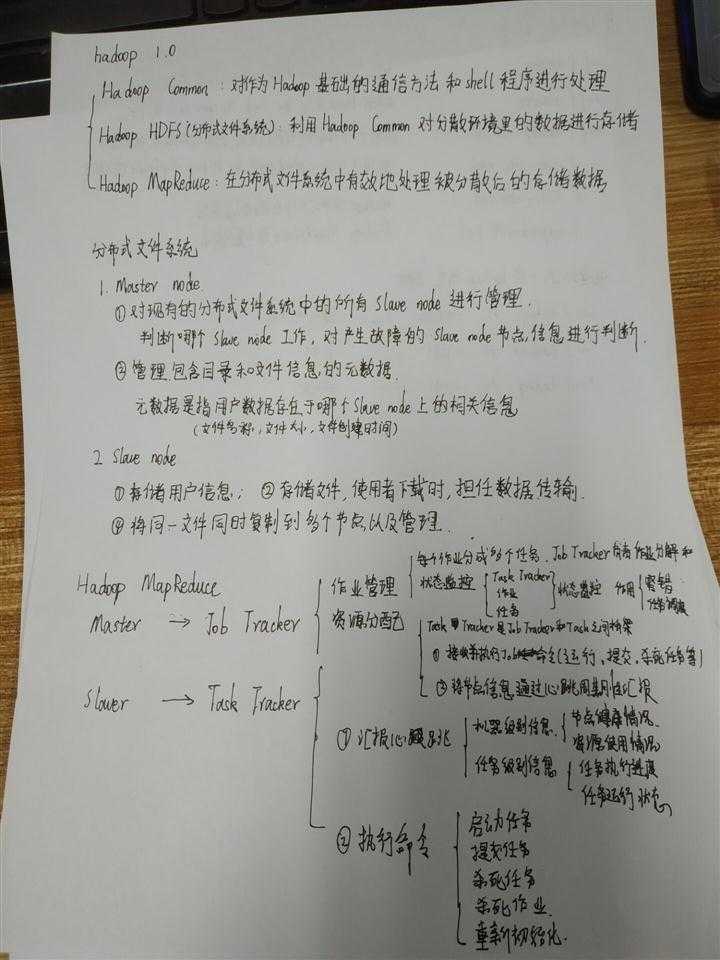 hadoop 1.0
Hadoop Common：对作为Hadoop基础的通信方法和shell程序进行处理
Hadoop HDFS(分布式文件系统)：利用Hadoop Common对分散环境里的数据进行存储
Hadoop MapReduce：在分布式文件系统中有效地处理被分散后的存储数据
分布式文件系统
1. Master node
①对现有的分布式文件系统中的所有Slave node进行管理.
判断哪个Slave node工作，对产生故障的Slave node节点信息进行判断.
②管理包含目录和文件信息的元数据.
元数据是指用户数据存在于哪个Slave node上的相关信息
(文件名称，文件大小，文件创建时间)
2 Slave node
①存储用户信息；②存储文件，使用者下载时，担任数据传输.
④将同一文件同时复制到多个节点以及管理.
每个作业分成多个任务. Job Tracker 作业分解和
状态监控 Task Tracker 作业 任务 状态监控 作用 容错 任务调度
Hadoop MapReduce
Master → Job Tracker 作业管理 资源分配
Task Tracker是Job Tracker和Task之间桥梁
①接收并执行Job命令(运行，提交，杀死任务等)
②将节点信息通过心跳周期性汇报
Slaver → Task Tracker
①汇报心跳 机器级别信息. 节点健康情况. 资源使用情况
任务级别信息 任务执行进度
任务运行状态
②执行命令 启动任务
提交任务
杀死任务
杀死作业.
重新初始化.